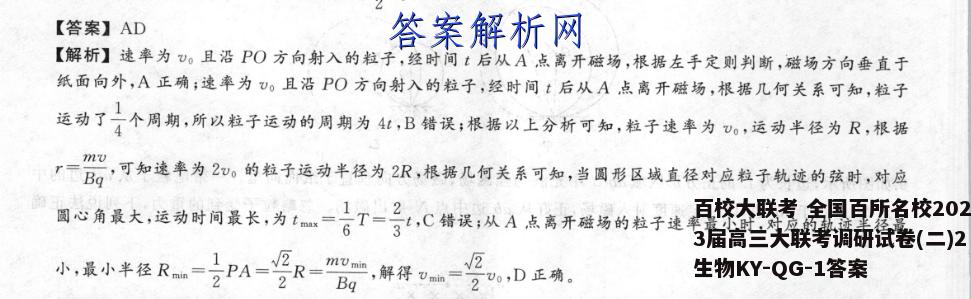 答案解析网
【答案】AD
【解析】速率为 v₀ 且沿 PO 方向射入的粒子,经时间 t 后从 A 点离开磁场,根据左手定则判断,磁场方向垂直于
纸面向外,A 正确;速率为 v₀ 且沿 PO 方向射入的粒子,经时间 t 后从 A 点离开磁场,根据几何关系可知,粒子
运动了1/4个周期,所以粒子运动的周期为 4t,B 错误;根据以上分析可知,粒子速率为 v₀,运动半径为 R,根据
r=mv/Bq,可知速率为 2v₀ 的粒子运动半径为 2R,根据几何关系可知,当圆形区域直径对应粒子轨迹的弦时,对应
圆心角最大,运动时间最长,为 t_max=1/6 T=2/3 t,C 错误;从 A 点离开磁场的粒子速率最小时,对应的轨迹半径最
小,最小半径 R_min=1/2 PA=√2/2 R=mv_min/Bq,解得 v_min=√2/2 v₀,D 正确。
百校大联考 全国百所名校202
3届高三大联考调研试卷(二)2
生物KY-QG-1答案